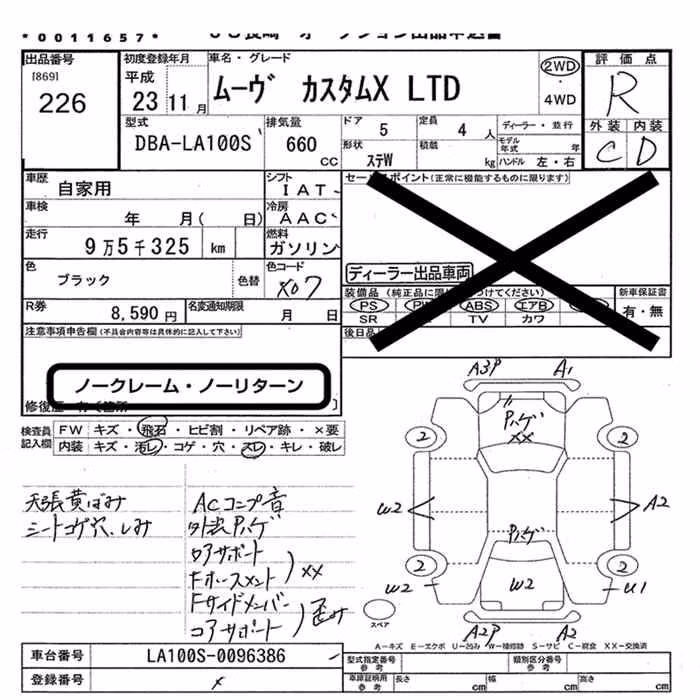 *0011657*
出品番号
[869]
226
初度登録年月
平成
23 11 月
車名・グレード
ムーヴ カスタムX LTD
2WD
・
4WD
評価点
R
外装 内装
C D
型式
DBA-LA100S
排気量
660
CC
ドア
5
定員
4 人
形状
ステW
積載
kg
ディーラー・並行
モデル年式 年
ハンドル 左・右
車歴
自家用
シフト
IAT
車検
年 月( 日)
冷房
AAC
走行
9万5千325 km
燃料
ガソリン
色
ブラック
色替
色コード
X07
R券
8,590 円
名変通知期限
月 日
セールスポイント(正常に機能するものに限ります)
ディーラー出品車両
装備品
PS ABS エアB
SR TV カワ
新車保証書
有・無
後日品
注意事項申告欄(不具合内容等は具体的に記入して下さい)
ノークレーム・ノーリターン
検査員記入欄
FW キズ・飛石・ヒビ割・リペア跡・×要
内装 キズ・汚レ・コゲ・穴・スレ・キレ・破レ
天張黄ばみ
シートコゲ穴、しみ
ACコンプ音
外装Pハゲ
コアサポート
Fホースメント ) ××
Fサイドメンバー
コアサポート ) 歪み
A3P A1
Pハゲ
××
2 2
W2 A2
Pハゲ
2 2
W2 W2 U1
A2P A2
スペア
A-キズ E-エクボ U-凹み W-補修跡 S-サビ C-腐食 XX-交換済
車台番号 LA100S-0096386
登録番号
型式指定番号
参考
類別区分番号
参考
車庫証明用
参考
長さ cm 幅 cm 高さ cm